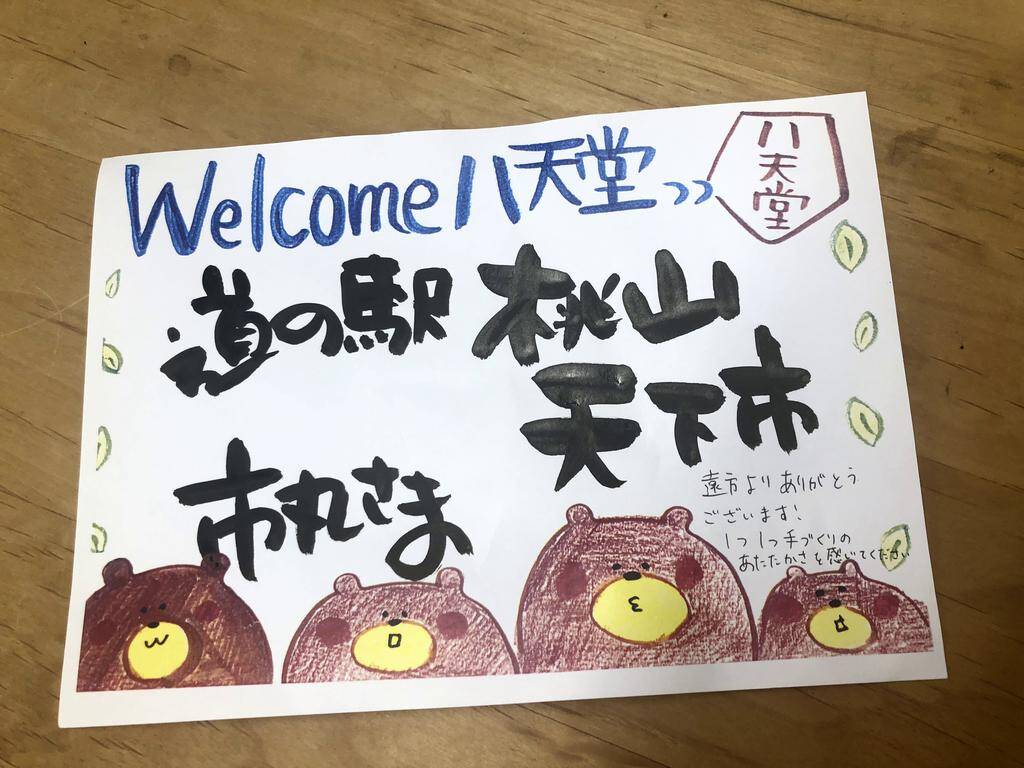 Welcome 八天堂 >>
八天堂
道の駅 桃山
天下市
市丸さま
遠方より ありがとう
ございます!
1つ1つ手づくりの
あたたかさを感じてください